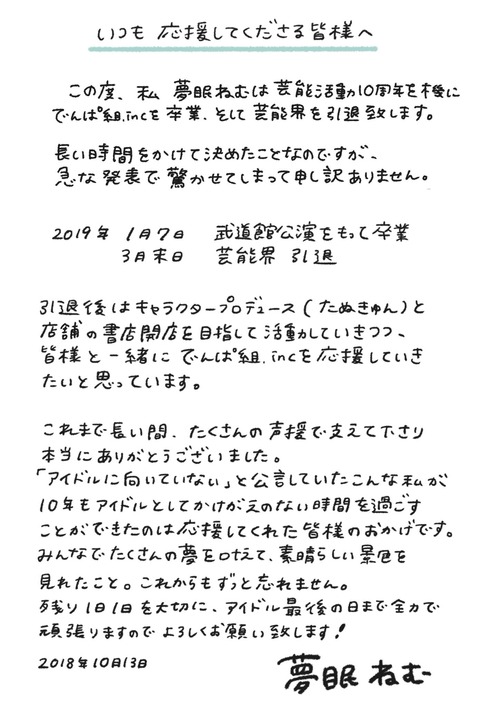 いつも 応援してくださる皆様へ
この度、私 夢眠ねむは芸能活動10周年を機に
でんぱ組.incを卒業、そして芸能界を引退致します。
長い時間をかけて決めたことなのですが、
急な発表で驚かせてしまって申し訳ありません。
2019年 1月7日 武道館公演をもって卒業
3月末日 芸能界 引退
引退後はキャラクタープロデュース(たぬきゅん)と
店舗の書店開店を目指して活動していきつつ、
皆様と一緒にでんぱ組.incを応援していき
たいと思っています。
これまで長い間、たくさんの声援で支えて下さり
本当にありがとうございました。
「アイドルに向いていない」と公言していたこんな私が
10年もアイドルとしてかけがえのない時間を過ごす
ことができたのは応援してくれた皆様のおかげです。
みんなでたくさんの夢を叶えて、素晴らしい景色を
見れたこと。これからもずっと忘れません。
残り1日1日を大切に、アイドル最後の日まで全力で
頑張りますのでよろしくお願い致します!
2018年10月13日
夢眠 ねむ